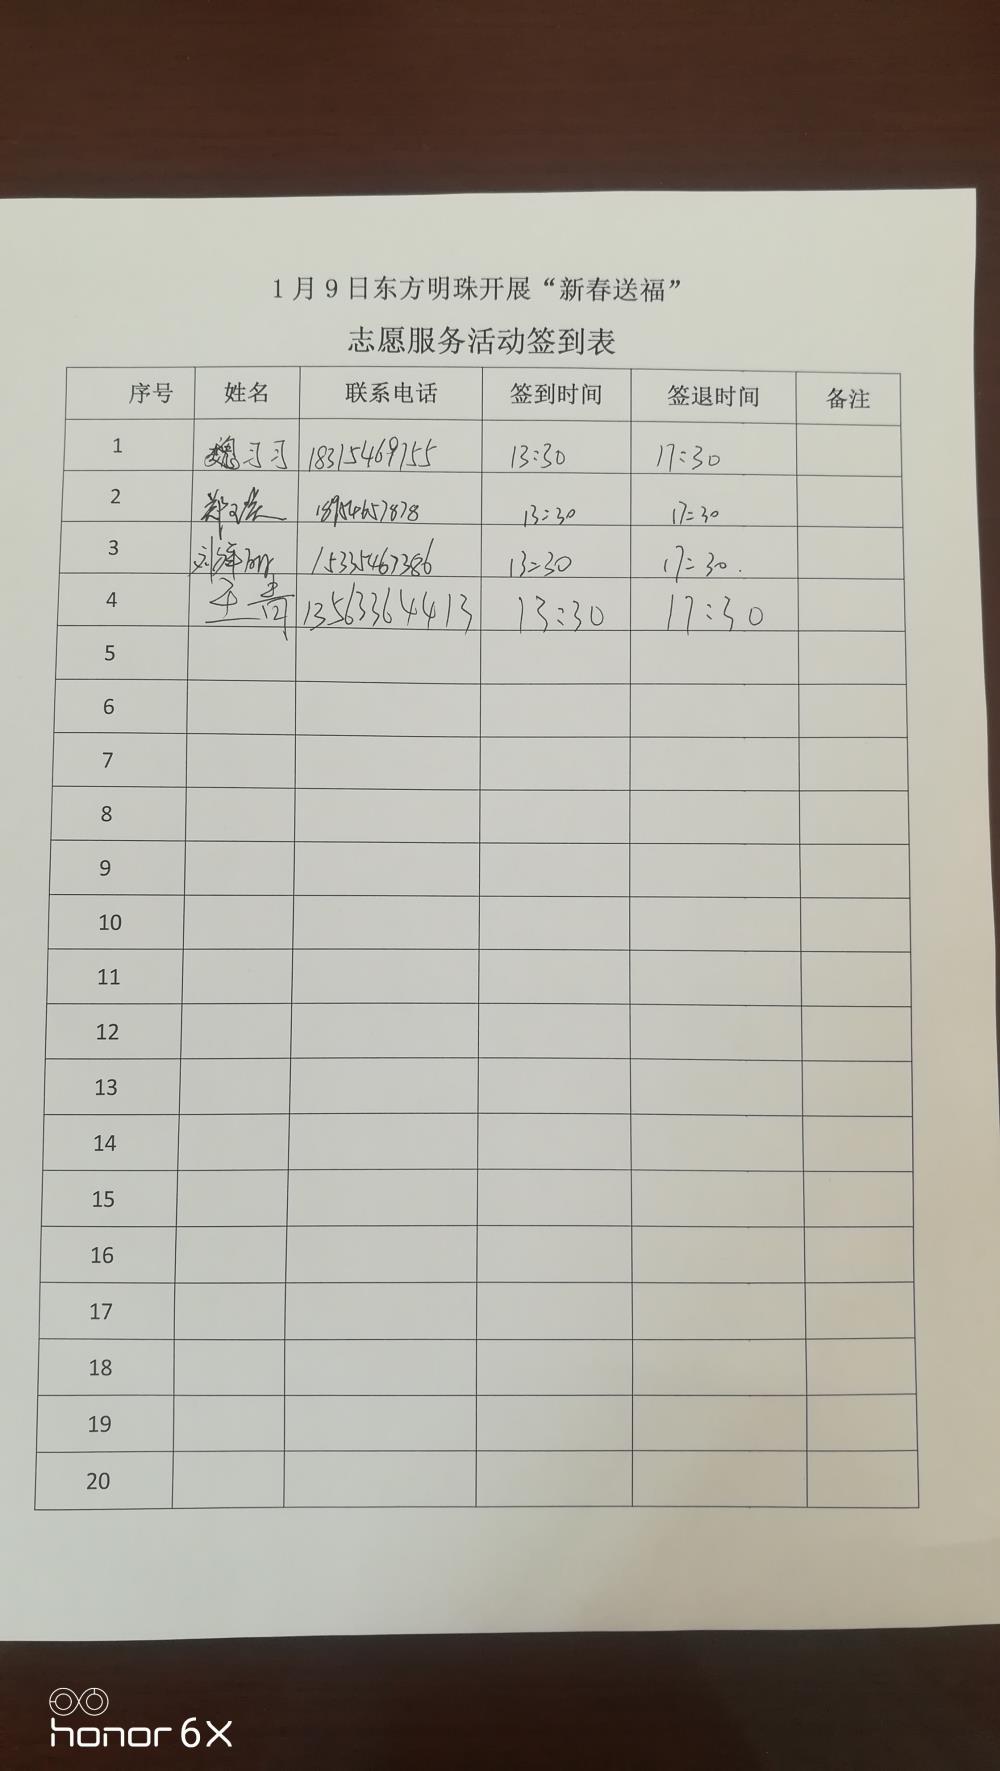 1月9日东方明珠开展“新春送福”
志愿服务活动签到表
序号 姓名 联系电话 签到时间 签退时间 备注
1 魏习习 18315469755 13:30 17:30
2 18954657878 13:30 17:30
3 15335467386 13:30 17:30.
4 王青 13563364413 13:30 17:30
5
6
7
8
9
10
11
12
13
14
15
16
17
18
19
20
honor 6X